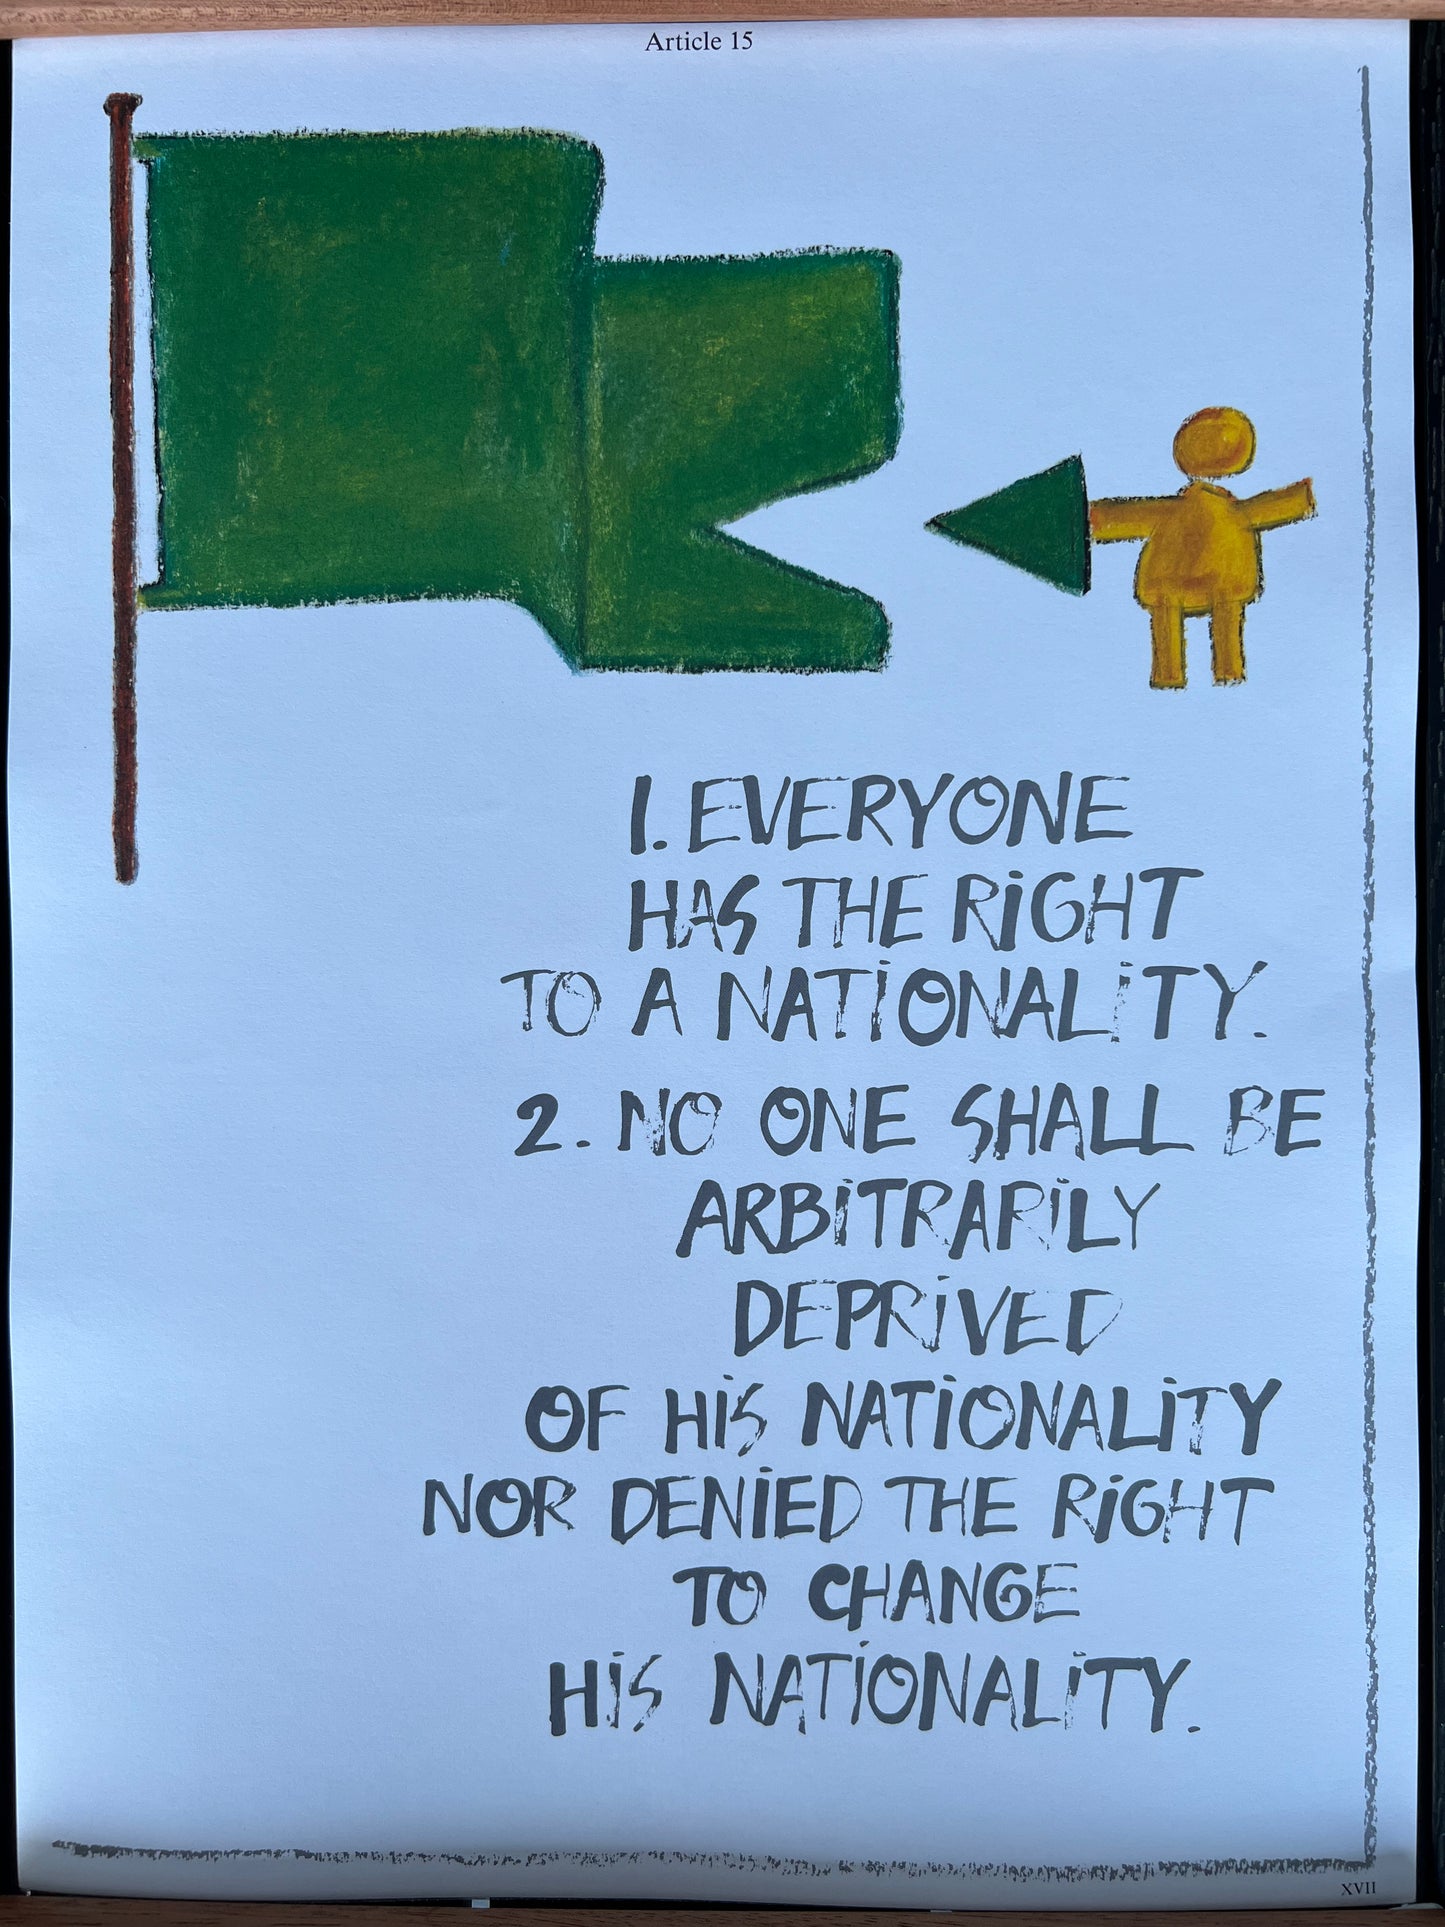 Article 15
1. EVERYONE
HAS THE RiGHT
TO A NATiONALiTY.
2. NO ONE SHALL BE
ARBiTRARiLY
DEPRiVED
OF HiS NATiONALiTY
NOR DENiED THE RiGHT
TO CHANGE
HiS NATiONALiTY.
XVII